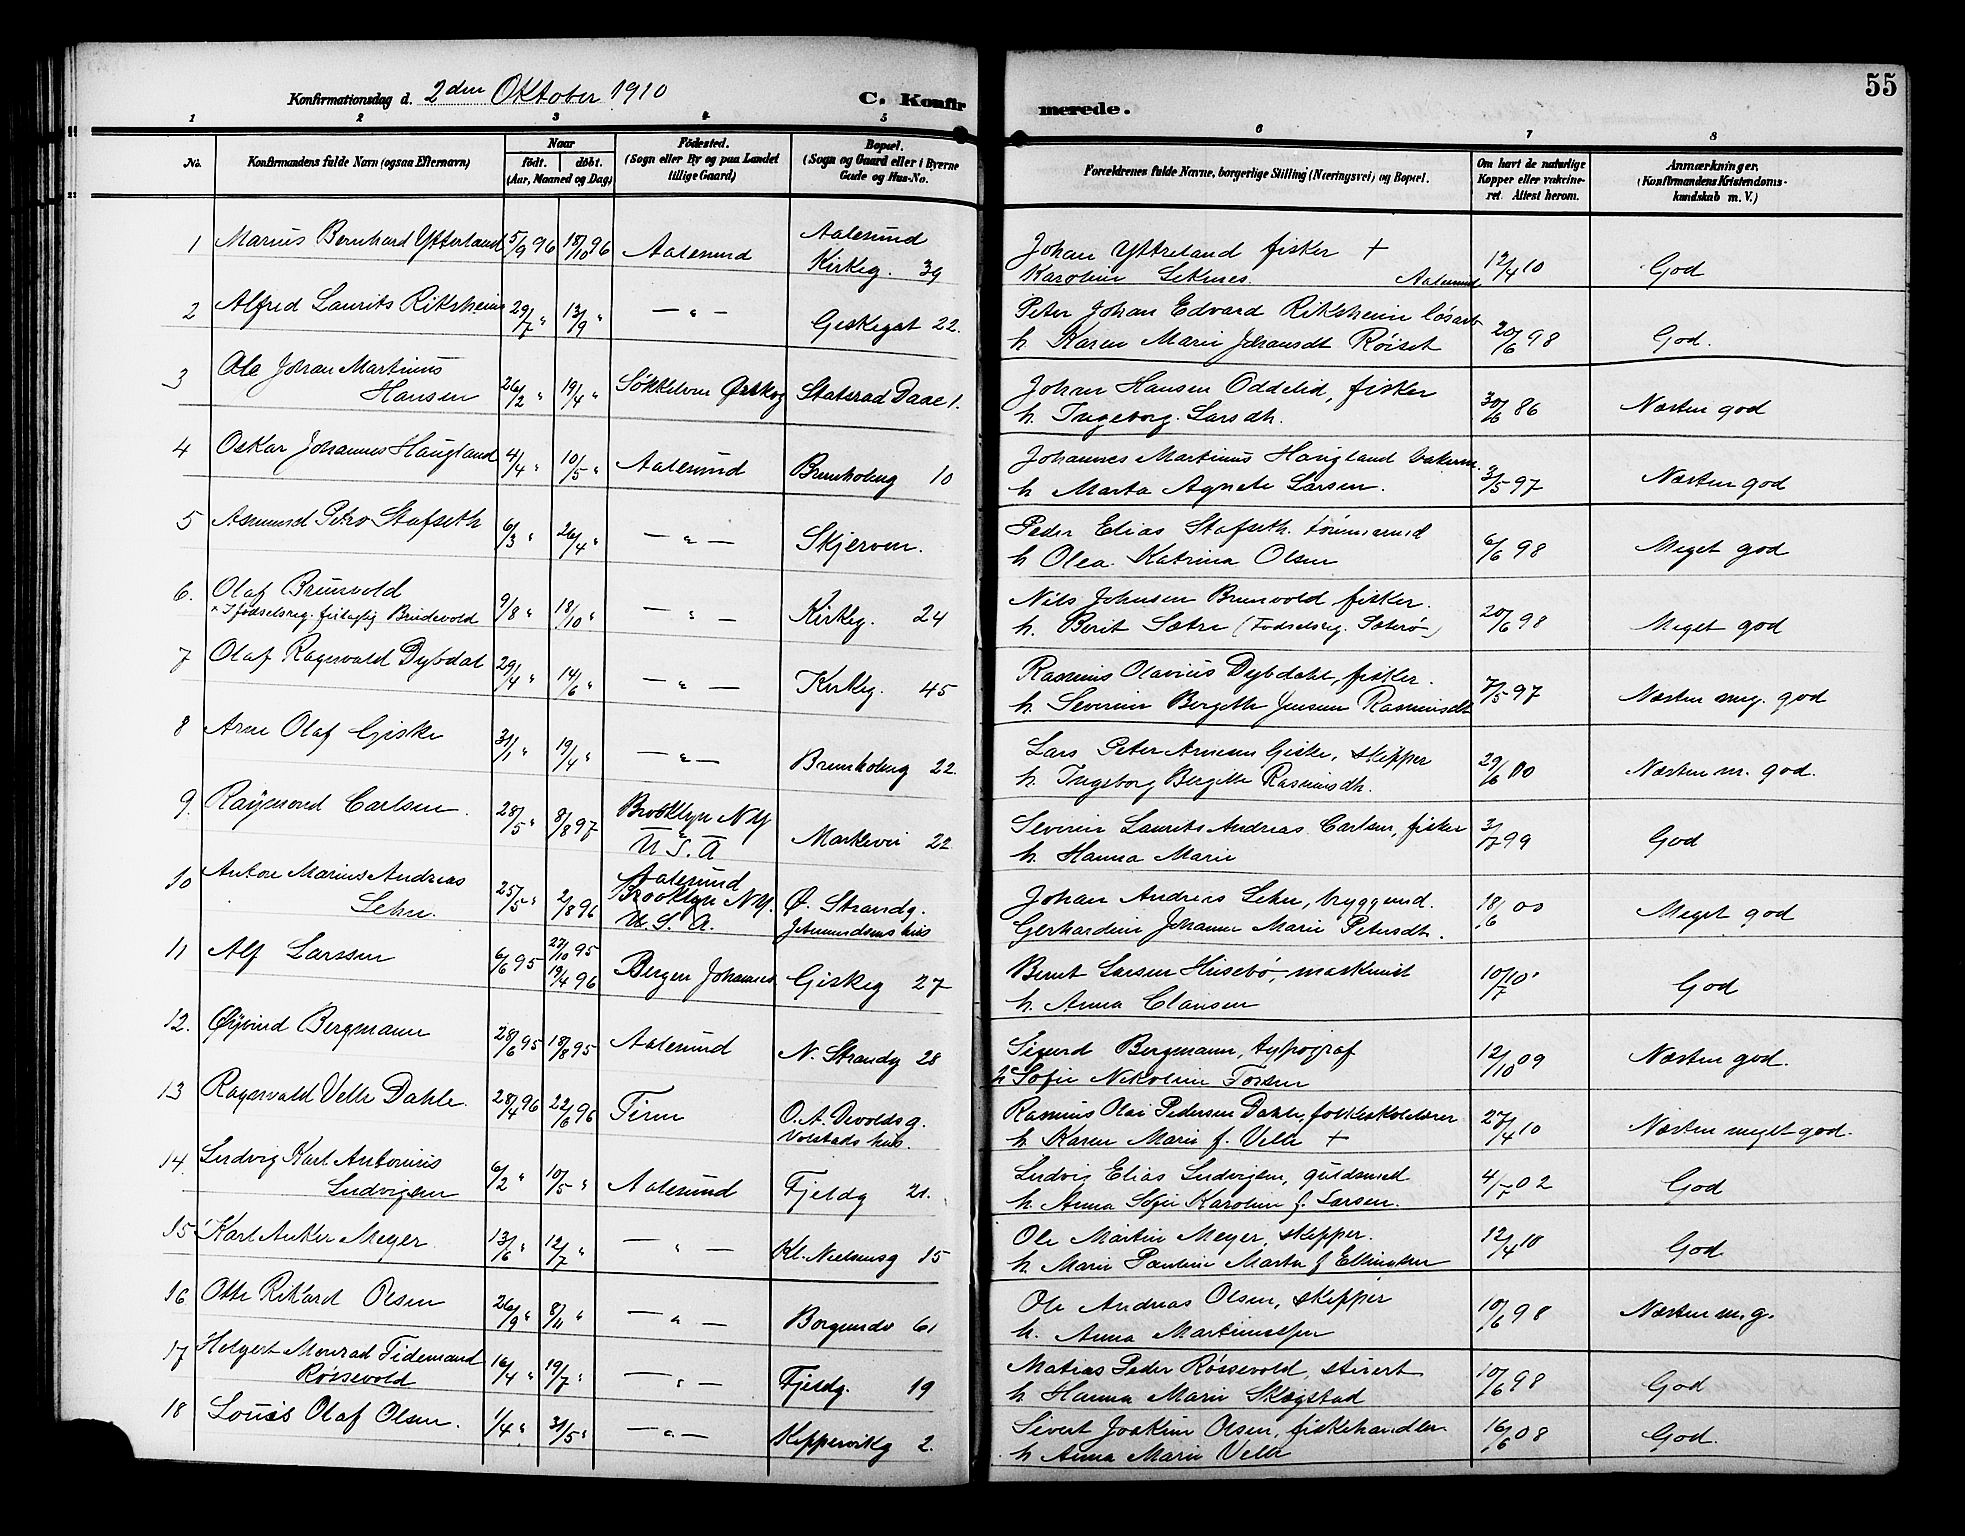 Konfirmationsdag d. 2den Oktober 1910 C. Konfir merede. 55
1 2 3 4 5 6 7 8
No. Konfirmandens fulde Navn (ogsaa Efternavn) Naar født. døbt. (Aar, Maaned og Dag) Fødested. (Sogn eller By og paa Landet tillige Gaard) Bopæl. (Sogn og Gaard eller i Byerne Gade og Hus-No. Forældrenes fulde Navne, borgerlige Stilling (Næringsvei) og Bopæl. Om havt de naturlige Kopper eller vakcineret. Attest herom. Anmærkninger, (Konfirmandens Kristendomskundskab m. V.)
1 Marius Bernhard Ytterland 5/9 96 18/10 96 Aalesund Aalesund Kirkeg. 39
Johan Yttreland fisker +
Karoline Seknes. Aalesund 12/4 10 God
2 Alfred Laurits Riksheim 29/7 " 13/9 " — " — Geskegat 22.
Peter Johan Edvard Riksheim løsarb
h. Karen Marie Johansdt Røiset 20/6 98 God.
3 Ole Johan Martinus
Hansen 26/2 " 19/4 " Søkkelven Ørskog Statsrad Daae 1.
Johan Hansen Oddelid, fisker
h. Ingeborg Larsdh. 30/6 86 Næsten god
4 Oskar Johannes Haugland 4/4 " 10/5 " Aalesund Bremholmg 10
Johannes Martinus Haugland bakerm.
h. Marta Agnete Larsen. 3/5 97 Næsten god
5 Asmund Petro Stafseth 6/3 " 26/4 " — " — Skjerven.
Peder Elias Stafseth. tømmermd
h Olea Katrina Olsen 6/6 98 Meget god
6. Olaf Brunvold
× I fødselsreg. feilagtig Bridevold 9/8 " 18/10 " — " — Kirkeg. 24
Nils Johnsen Brunvold fisker.
h. Berit Sætre (Fødselsreg. Sæterø) 20/6 98 Meget god
7 Olaf Ragnvald Dybdal 29/4 " 14/6 " — " — Kirkeg. 45
Rasmus Olavius Dybdahl, fisker.
h. Severine Bergitte Jensen Rasmusdt 7/5 97 Næsten meg. god
8 Arne Olaf Giske 31/1 " 19/4 " — " — Bremholmg 22.
Lars Peter Arnesen Giske, skipper
h. Ingeborg Bergitte Rasmusdh. 29/6 00 Næsten m. god.
9. Raymond Carlsen. 28/5 " 8/8 97 Brooklyn N Y
U. S. A Markevei 22.
Severin Laurits Andreas Carlsen, fisker
h. Hanna Marie 3/7 99 God
10 Anton Marius Andreas
Sehn. 25/5 " 2/8 96 Aalesund
Brooklyn N.Y.
U. S. A. Ø. Strandg.
Jetmundsens hus
Johan Andreas Sehn, bryggemd.
Gerhardine Johanne Marie Petersdt. 18/6 00 Meget god
11 Alf Larssen 6/6 95 27/10 95
19/4 96 Bergen Johannes Giskeg 27
Bernt Larsen Husebø, maskinist
h. Anna Clausen 10/7 10 God
12. Øyvind Bergmann 28/6 95 18/8 95 Aalesund N. Strandg 28
Sigurd Bergmann, typograf
h. Sofie Nikoline Forsen 12/10 09 Næsten god.
13 Ragnvald Velle Dahle. 28/4 96 22/6 96 Firm O. A. Devoldsg.
Volstads hus.
Rasmus Olai Pedersen Dahle, folkeskolelærer
h. Karen Marie f. Velle + 27/4 10 Næsten meget god.
14. Ludvig Karl Antonius
Ludvigsen 6/2 " 10/5 " Aalesund Fjeldg 21.
Ludvig Elias Ludvigsen, guldsmed
h. Anna Sofie Karoline f. Larsen. 4/5 02 God
15 Karl Anker Meyer 13/6 " 12/7 " — " — Kl. Nielsensg 15
Ole Martin Meyer, skipper.
h. Marie Pauline Marta f Ellingsen 12/4 10 God
16 Otto Rikard Olsen 26/9 " 8/11 " — " — Borgundv 61
Ole Andreas Olsen, skipper
h. Anna Martinussen 10/6 98 Næsten m. g.
17 Holgert Monrad Tidemand
Røssevold 16/4 " 19/7 " — " — Fjeldg. 19
Matias Peder Røssevold, stuert
h Hanna Marie Skogstad 10/6 98 God
18 Louis Olaf Olsen. 1/4 " 31/5 " — " — Kippervikg 2.
Sivert Joakim Olsen, fiskehandler
h Anna Marie Velle 16/6 08 God.